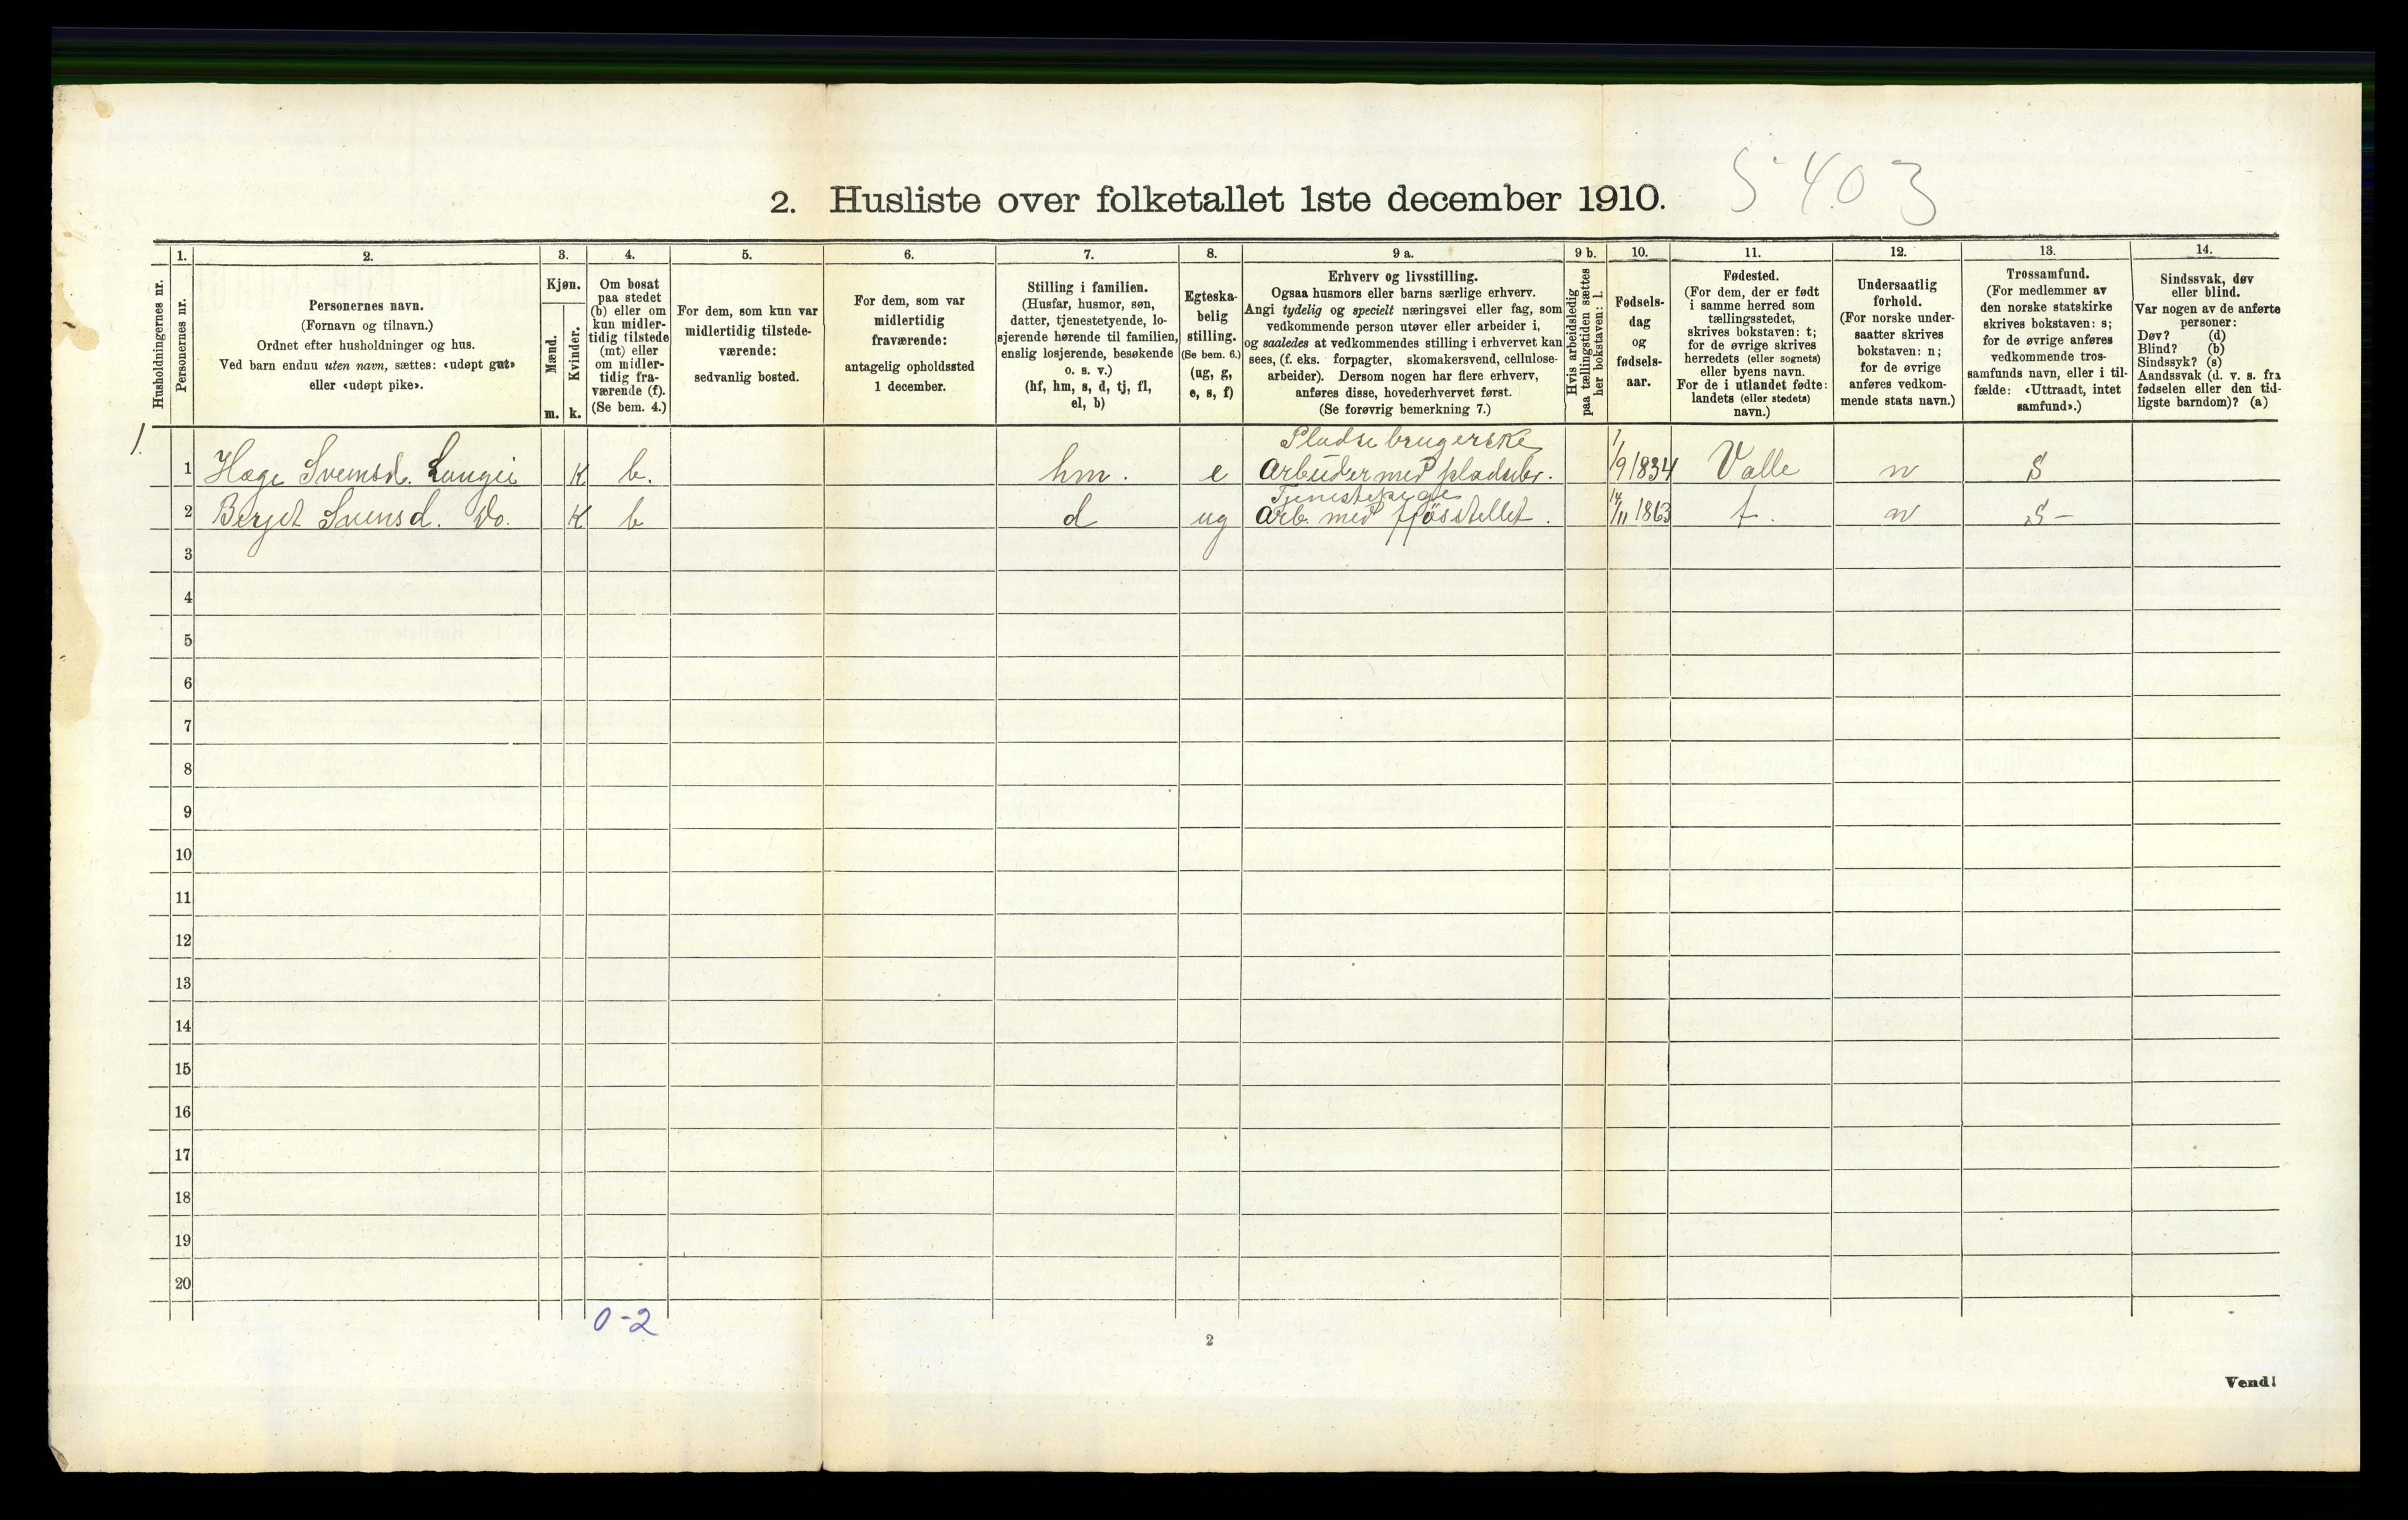 5403
2. Husliste over folketallet 1ste december 1910.
Husholdningernes nr.
1.
Personernes nr.
2.
Personernes navn.
(Fornavn og tilnavn.)
Ordnet efter husholdninger og hus.
Ved barn endnu uten navn, sættes: «udøpt gut»
eller «udøpt pike».
3.
Kjøn.
Mænd.
m.
Kvinder.
k.
4.
Om bosat
paa stedet
(b) eller om
kun midler-
tidig tilstede
(mt) eller
om midler-
tidig fra-
værende (f).
(Se bem. 4.)
5.
For dem, som kun var
midlertidig tilstede-
værende:
sedvanlig bosted.
6.
For dem, som var
midlertidig
fraværende:
antagelig opholdssted
1 december.
7.
Stilling i familien.
(Husfar, husmor, søn,
datter, tjenestetyende, lo-
sjerende hørende til familien,
enslig losjerende, besøkende
o. s. v.)
(hf, hm, s, d, tj, fl,
el, b)
8.
Egteska-
belig
stilling.
(Se bem. 6.)
(ug, g,
e, s, f)
9 a.
Erhverv og livsstilling.
Ogsaa husmors eller barns særlige erhverv.
Angi tydelig og specielt næringsvei eller fag, som
vedkommende person utøver eller arbeider i,
og saaledes at vedkommendes stilling i erhvervet kan
sees, (f. eks. forpagter, skomakersvend, cellulose-
arbeider). Dersom nogen har flere erhverv,
anføres disse, hovederhvervet først.
(Se forøvrig bemerkning 7.)
9 b.
Hvis arbeidsledig
paa tællingstiden sættes
her bokstaven: l.
10.
Fødsels-
dag
og
fødsels-
aar.
11.
Fødested.
(For dem, der er født
i samme herred som
tællingsstedet,
skrives bokstaven: t;
for de øvrige skrives
herredets (eller sognets)
eller byens navn.
For de i utlandet fødte:
landets (eller stedets)
navn.)
12.
Undersaatlig
forhold.
(For norske under-
saatter skrives
bokstaven: n;
for de øvrige
anføres vedkom-
mende stats navn.)
13.
Trossamfund.
(For medlemmer av
den norske statskirke
skrives bokstaven: s;
for de øvrige anføres
vedkommende tros-
samfunds navn, eller i til-
fælde: «Uttraadt, intet
samfund».)
14.
Sindssvak, døv
eller blind.
Var nogen av de anførte
personer:
Døv? (d)
Blind? (b)
Sindssyk? (s)
Aandssvak (d. v. s. fra
fødselen eller den tid-
ligste barndom)? (a)
Pladsebrugerske
1. 1 Hæge Svensd. Langei K b. hm. e Arbeider med pladsebr. 1/9 1834 Valle n S
Tjenestepige
2 Berjet Svensd. Do. K b d ug Arb. med fjösstellet. 14/11 1863 t. n S-
3
4
5
6
7
8
9
10
11
12
13
14
15
16
17
18
19
20
0-2
2
Vend!